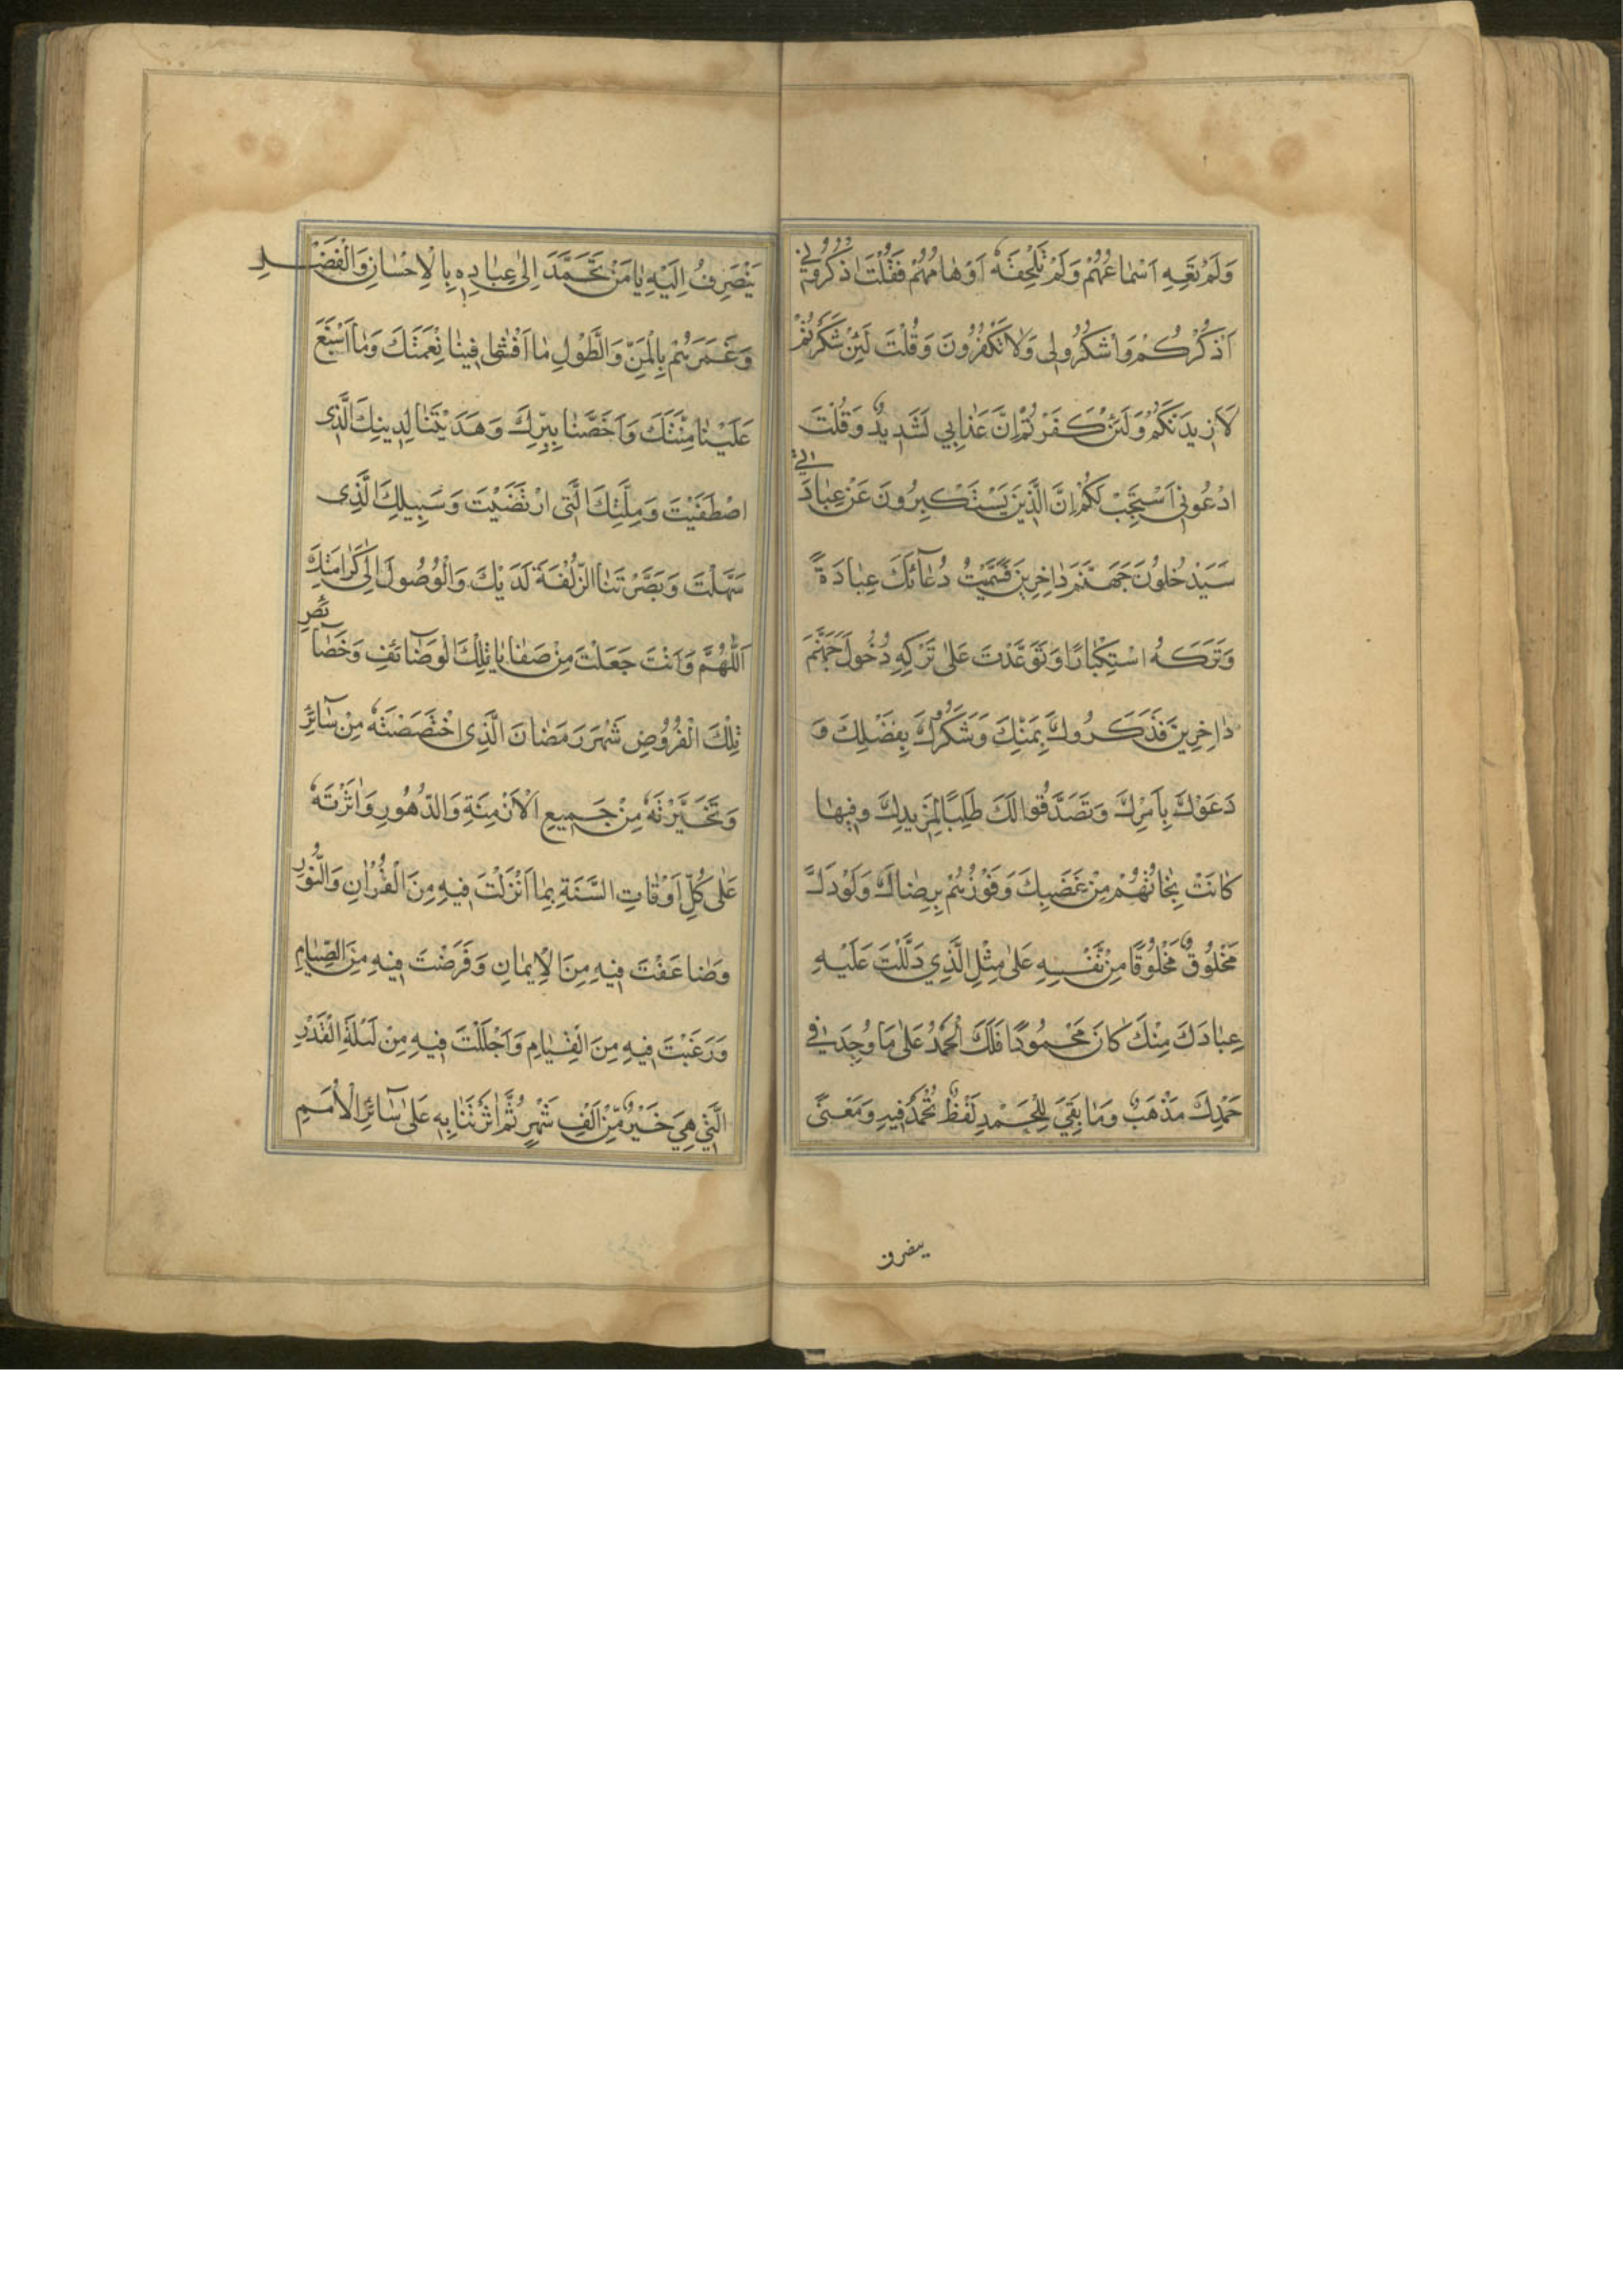 وَلَمْ تَعِهِ اَسْمَاعُهُمْ وَلَمْ تَلْحَقْهُ اَوْهَامُهُمْ فَقُلْتَ اذْكُرُونِي
اَذْكُرْكُمْ وَاشْكُرُوا لِي وَلَا تَكْفُرُونَ وَقُلْتَ لَئِنْ شَكَرْتُمْ
لَاَزِيدَنَّكُمْ وَلَئِنْ كَفَرْتُمْ اِنَّ عَذَابِي لَشَدِيدٌ وَقُلْتَ
ادْعُونِي اَسْتَجِبْ لَكُمْ اِنَّ الَّذِينَ يَسْتَكْبِرُونَ عَنْ عِبَادَتِي
سَيَدْخُلُونَ جَهَنَّمَ دَاخِرِينَ فَسَمَّيْتَ دُعَآئَكَ عِبَادَةً
وَتَرْكَهُ اسْتِكْبَارًا وَتَوَعَّدْتَ عَلَى تَرْكِهِ دُخُولَ جَهَنَّمَ
دَاخِرِينَ فَذَكَرُوكَ بِمَنِّكَ وَشَكَرُوكَ بِفَضْلِكَ وَ
دَعَوْكَ بِاَمْرِكَ وَتَصَدَّقُوا لَكَ طَلَبًا لِمَزِيدِكَ وَفِيهَا
كَانَتْ نَجَاتُهُمْ مِنْ غَضَبِكَ وَفَوْزُهُمْ بِرِضَاكَ وَلَوْ دَلَّ
مَخْلُوقٌ مَخْلُوقًا مِنْ نَفْسِهِ عَلَى مِثْلِ الَّذِي دَلَّلْتَ عَلَيْهِ
عِبَادَكَ مِنْكَ كَانَ مَحْمُودًا فَلَكَ الْحَمْدُ عَلَى مَا وُجِدَ فِي
حَمْدِكَ مَذْهَبٌ وَمَا بَقِيَ لِلْحَمْدِ لَفْظٌ تُحْمَدُ فِيهِ وَمَعْنًى
ينصرف
يَنْصَرِفُ اِلَيْهِ يَا مَنْ تَحَمَّدَ اِلَى عِبَادِهِ بِالْاِحْسَانِ وَالْفَضْلِ
وَغَمَرَهُمْ بِالْمَنِّ وَالطَّوْلِ مَا اَفْشَا فِينَا نِعْمَتَكَ وَمَا اَسْبَغَ
عَلَيْنَا مِنَّتَكَ وَاَخَصَّنَا بِبِرِّكَ وَهَدَيْتَنَا لِدِينِكَ الَّذِي
اصْطَفَيْتَ وَمِلَّتِكَ الَّتِي ارْتَضَيْتَ وَسَبِيلِكَ الَّذِي
سَهَّلْتَ وَبَصَّرْتَنَا الزُّلْفَةَ لَدَيْكَ وَالْوُصُولَ اِلَى كَرَامَتِكَ
اَللّٰهُمَّ وَاَنْتَ جَعَلْتَ مِنْ صَفَايَا تِلْكَ الْوَضَآئِفِ وَخَصَآئِصِ
تِلْكَ الْفُرُوضِ شَهْرَ رَمَضَانَ الَّذِي اخْتَصَصْتَهُ مِنْ سَآئِرِ
وَتَخَيَّرْتَهُ مِنْ جَمِيعِ الْاَزْمِنَةِ وَالدُّهُورِ وَاٰثَرْتَهُ
عَلَى كُلِّ اَوْقَاتِ السَّنَةِ بِمَا اَنْزَلْتَ فِيهِ مِنَ الْقُرْاٰنِ وَالنُّورِ
وَضَاعَفْتَ فِيهِ مِنَ الْاِيمَانِ وَفَرَضْتَ فِيهِ مِنَ الصِّيَامِ
وَرَغَّبْتَ فِيهِ مِنَ الْقِيَامِ وَاَجْلَلْتَ فِيهِ مِنْ لَيْلَةِ الْقَدْرِ
الَّتِي هِيَ خَيْرٌ مِّنْ اَلْفِ شَهْرٍ ثُمَّ اٰثَرْتَنَا بِهِ عَلَى سَآئِرِ الْاُمَمِ